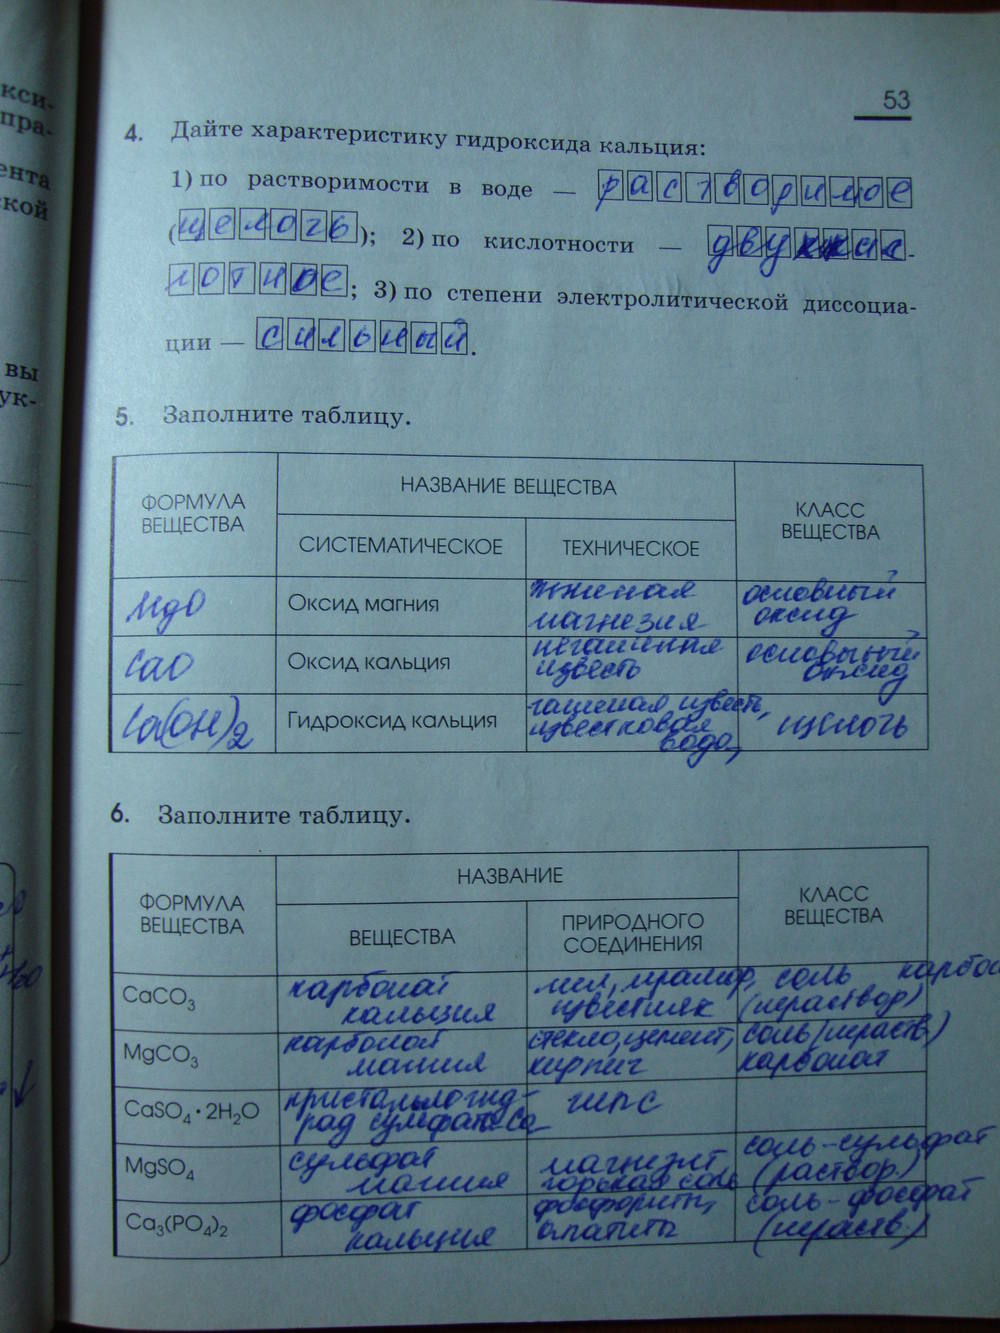 кси-
пра-
ента
ской
вы
ук-
53
4. Дайте характеристику гидроксида кальция:
1) по растворимости в воде — растворимое
(щелочь); 2) по кислотности — двухкис-
лотное; 3) по степени электролитической диссоциа-
ции — сильный.
5. Заполните таблицу.
ФОРМУЛА ВЕЩЕСТВА
НАЗВАНИЕ ВЕЩЕСТВА
КЛАСС ВЕЩЕСТВА
СИСТЕМАТИЧЕСКОЕ
ТЕХНИЧЕСКОЕ
MgO
Оксид магния
жженая
магнезия
основный
оксид
CaO
Оксид кальция
негашенная
известь
основный
оксид
Ca(OH)2
Гидроксид кальция
гашеная известь,
известковая
вода,
щелочь
6. Заполните таблицу.
ФОРМУЛА ВЕЩЕСТВА
НАЗВАНИЕ
КЛАСС ВЕЩЕСТВА
ВЕЩЕСТВА
ПРИРОДНОГО СОЕДИНЕНИЯ
CaCO3
карбонат
кальция
мел, мрамор,
известняк
соль карбон
(нераствор)
MgCO3
карбонат
магния
стекло, цемент,
кирпич
соль (нераств.)
карбонат
CaSO4 · 2H2O
кристаллогид-
рад сульфата Ca
гипс
MgSO4
сульфат
магния
магнезит
горькая соль
соль-сульфат
(раствор.)
Ca3(PO4)2
фосфат
кальция
фосфориты,
апатиты
соль-фосфат
(нераств.)